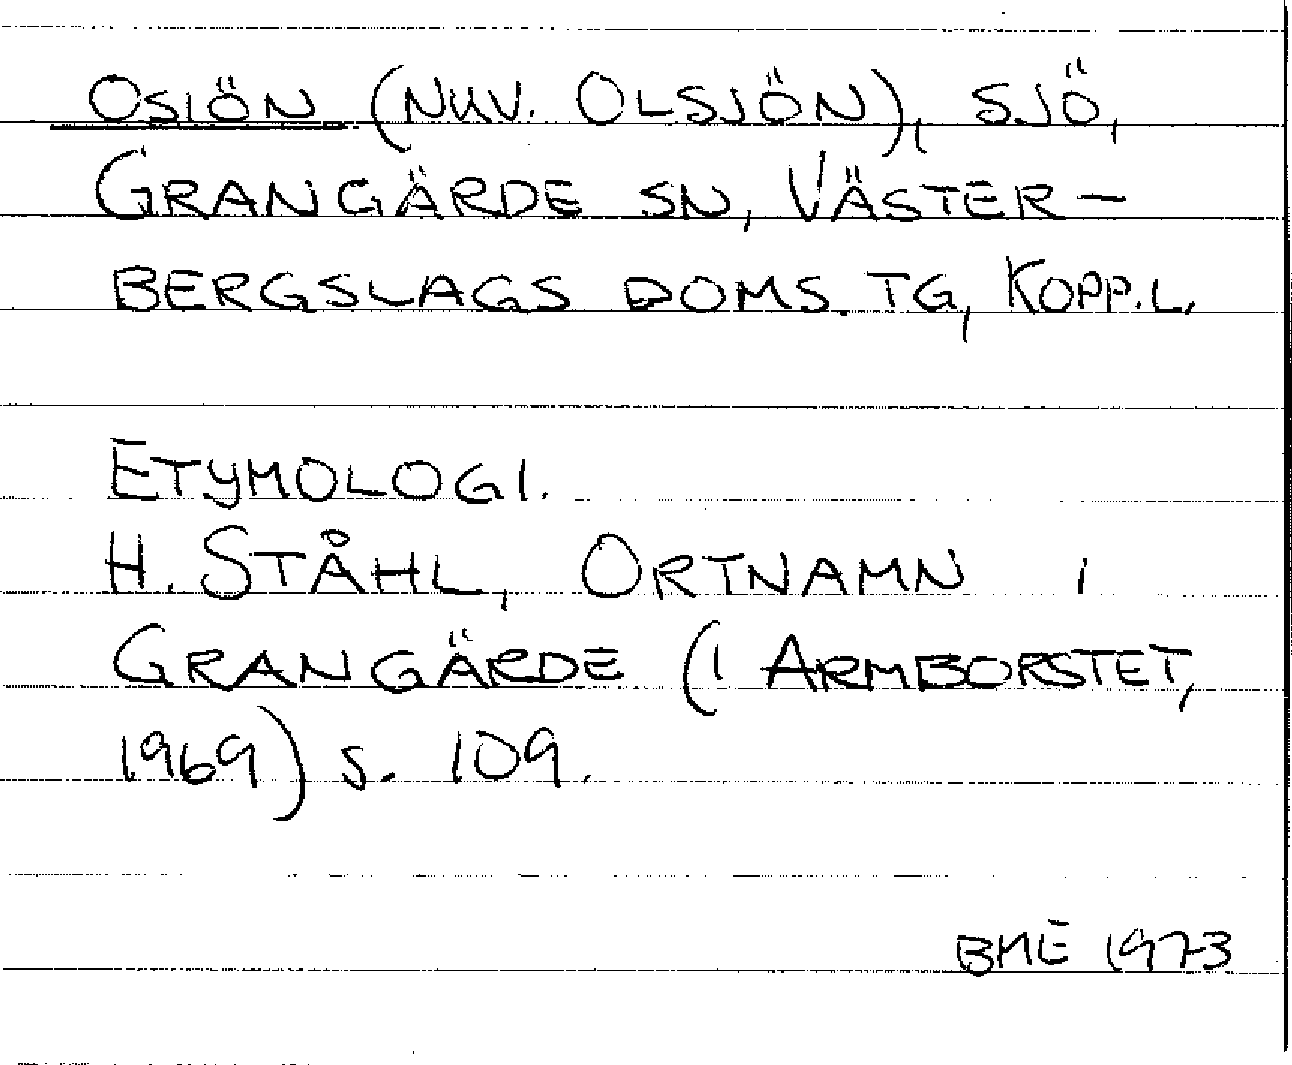 OSIÖN (NUV. OLSJÖN), SJÖ,
GRANGÄRDE SN, VÄSTER-
BERGSLAGS DOMS.TG, KOPP.L.
ETYMOLOGI.
H. STÅHL, ORTNAMN I
GRANGÄRDE (I ARMBORSTET,
1969) S. 109.
BME 1973